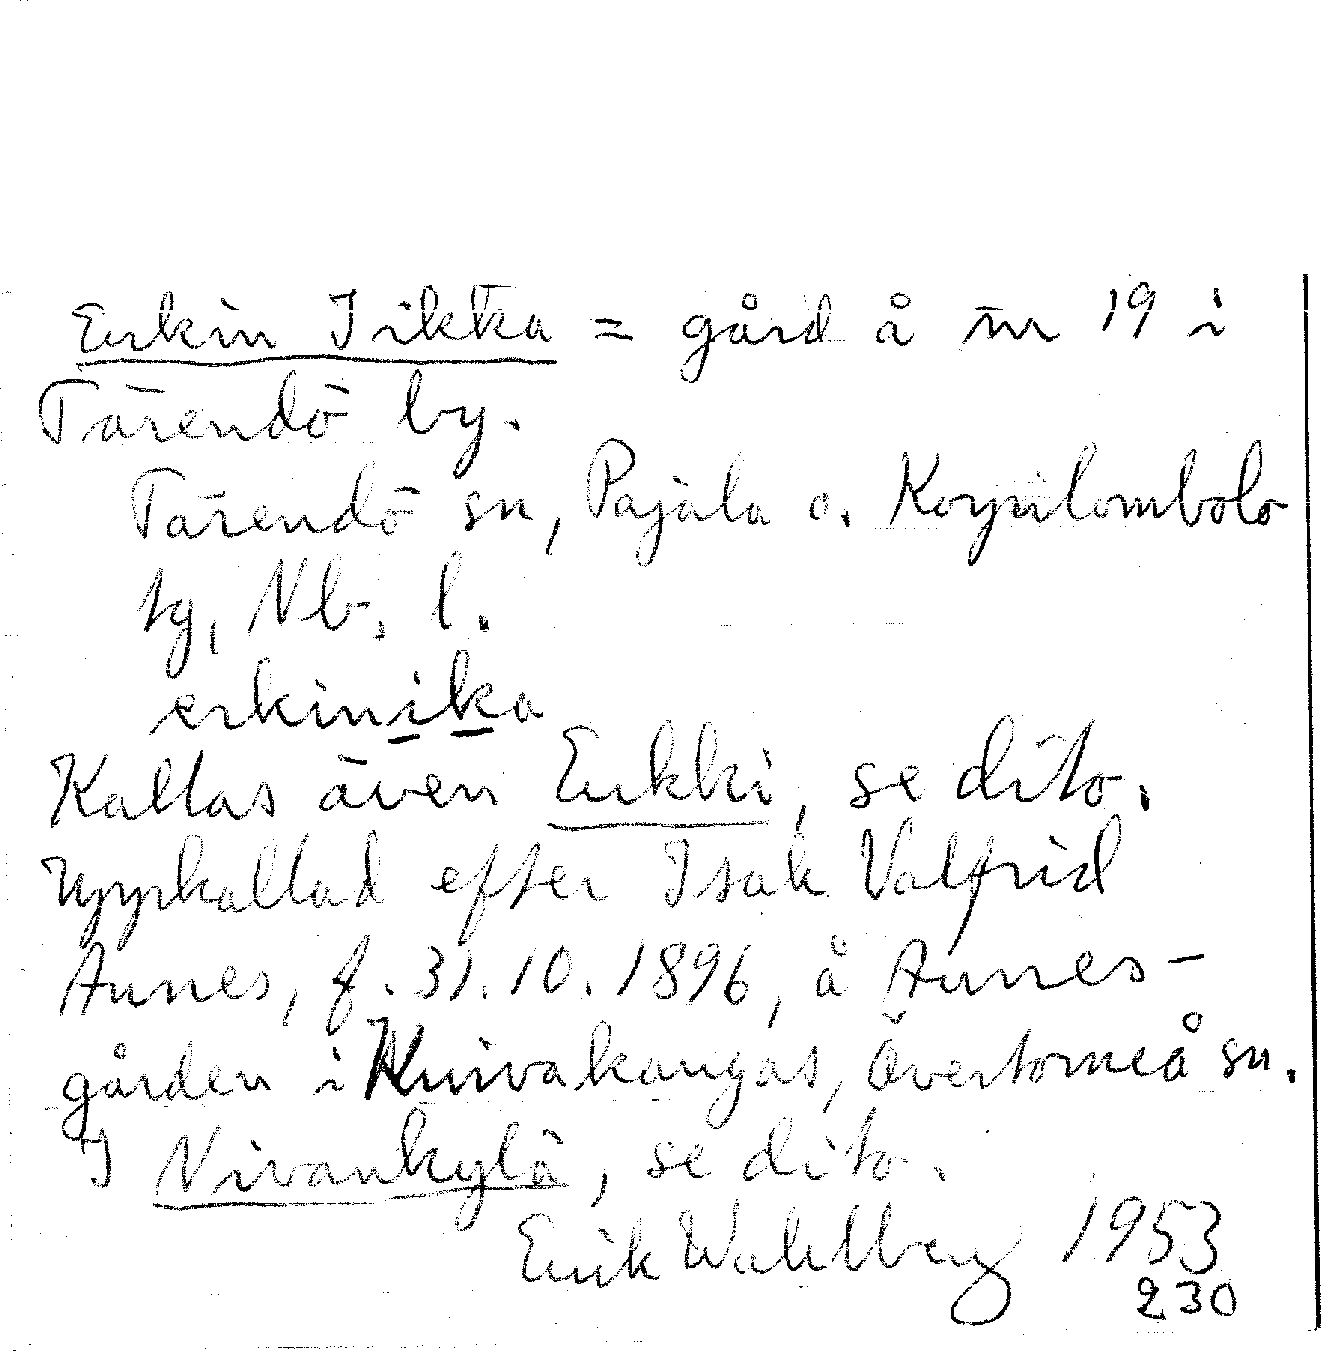 Erkin Iikka = gård å nr 19 i
Tärendö by.
Tärendö sn, Pajala o. Korpilombolo
tg, Nb. l.
erkinika
Kallas även Erkki, se dito.
Uppkallad efter Isak Valfrid
Aunes, f. 31.10.1896, å Aunes-
gården i Kuivakangas, Övertorneå sn.
I Nivankylä, se dito.
Erik Wahlberg 1953
230